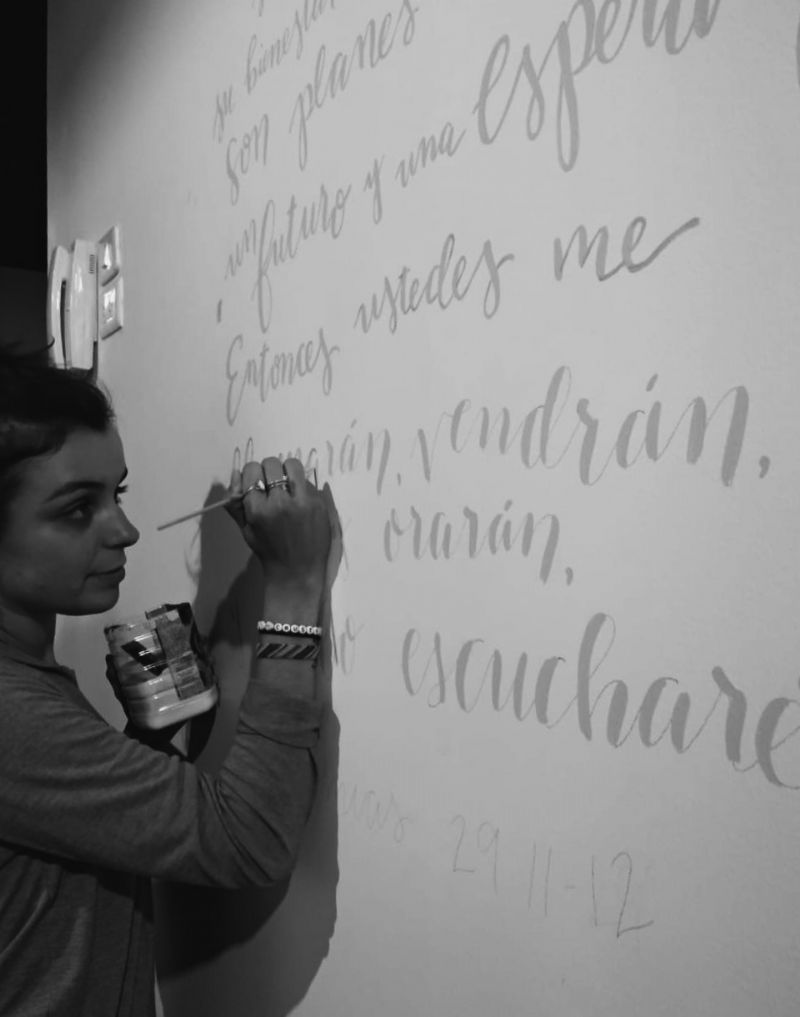 su bienestar
son planes
un futuro y una espera
Entonces ustedes me
vendrán,
orarán,
escucharé
29 11-12